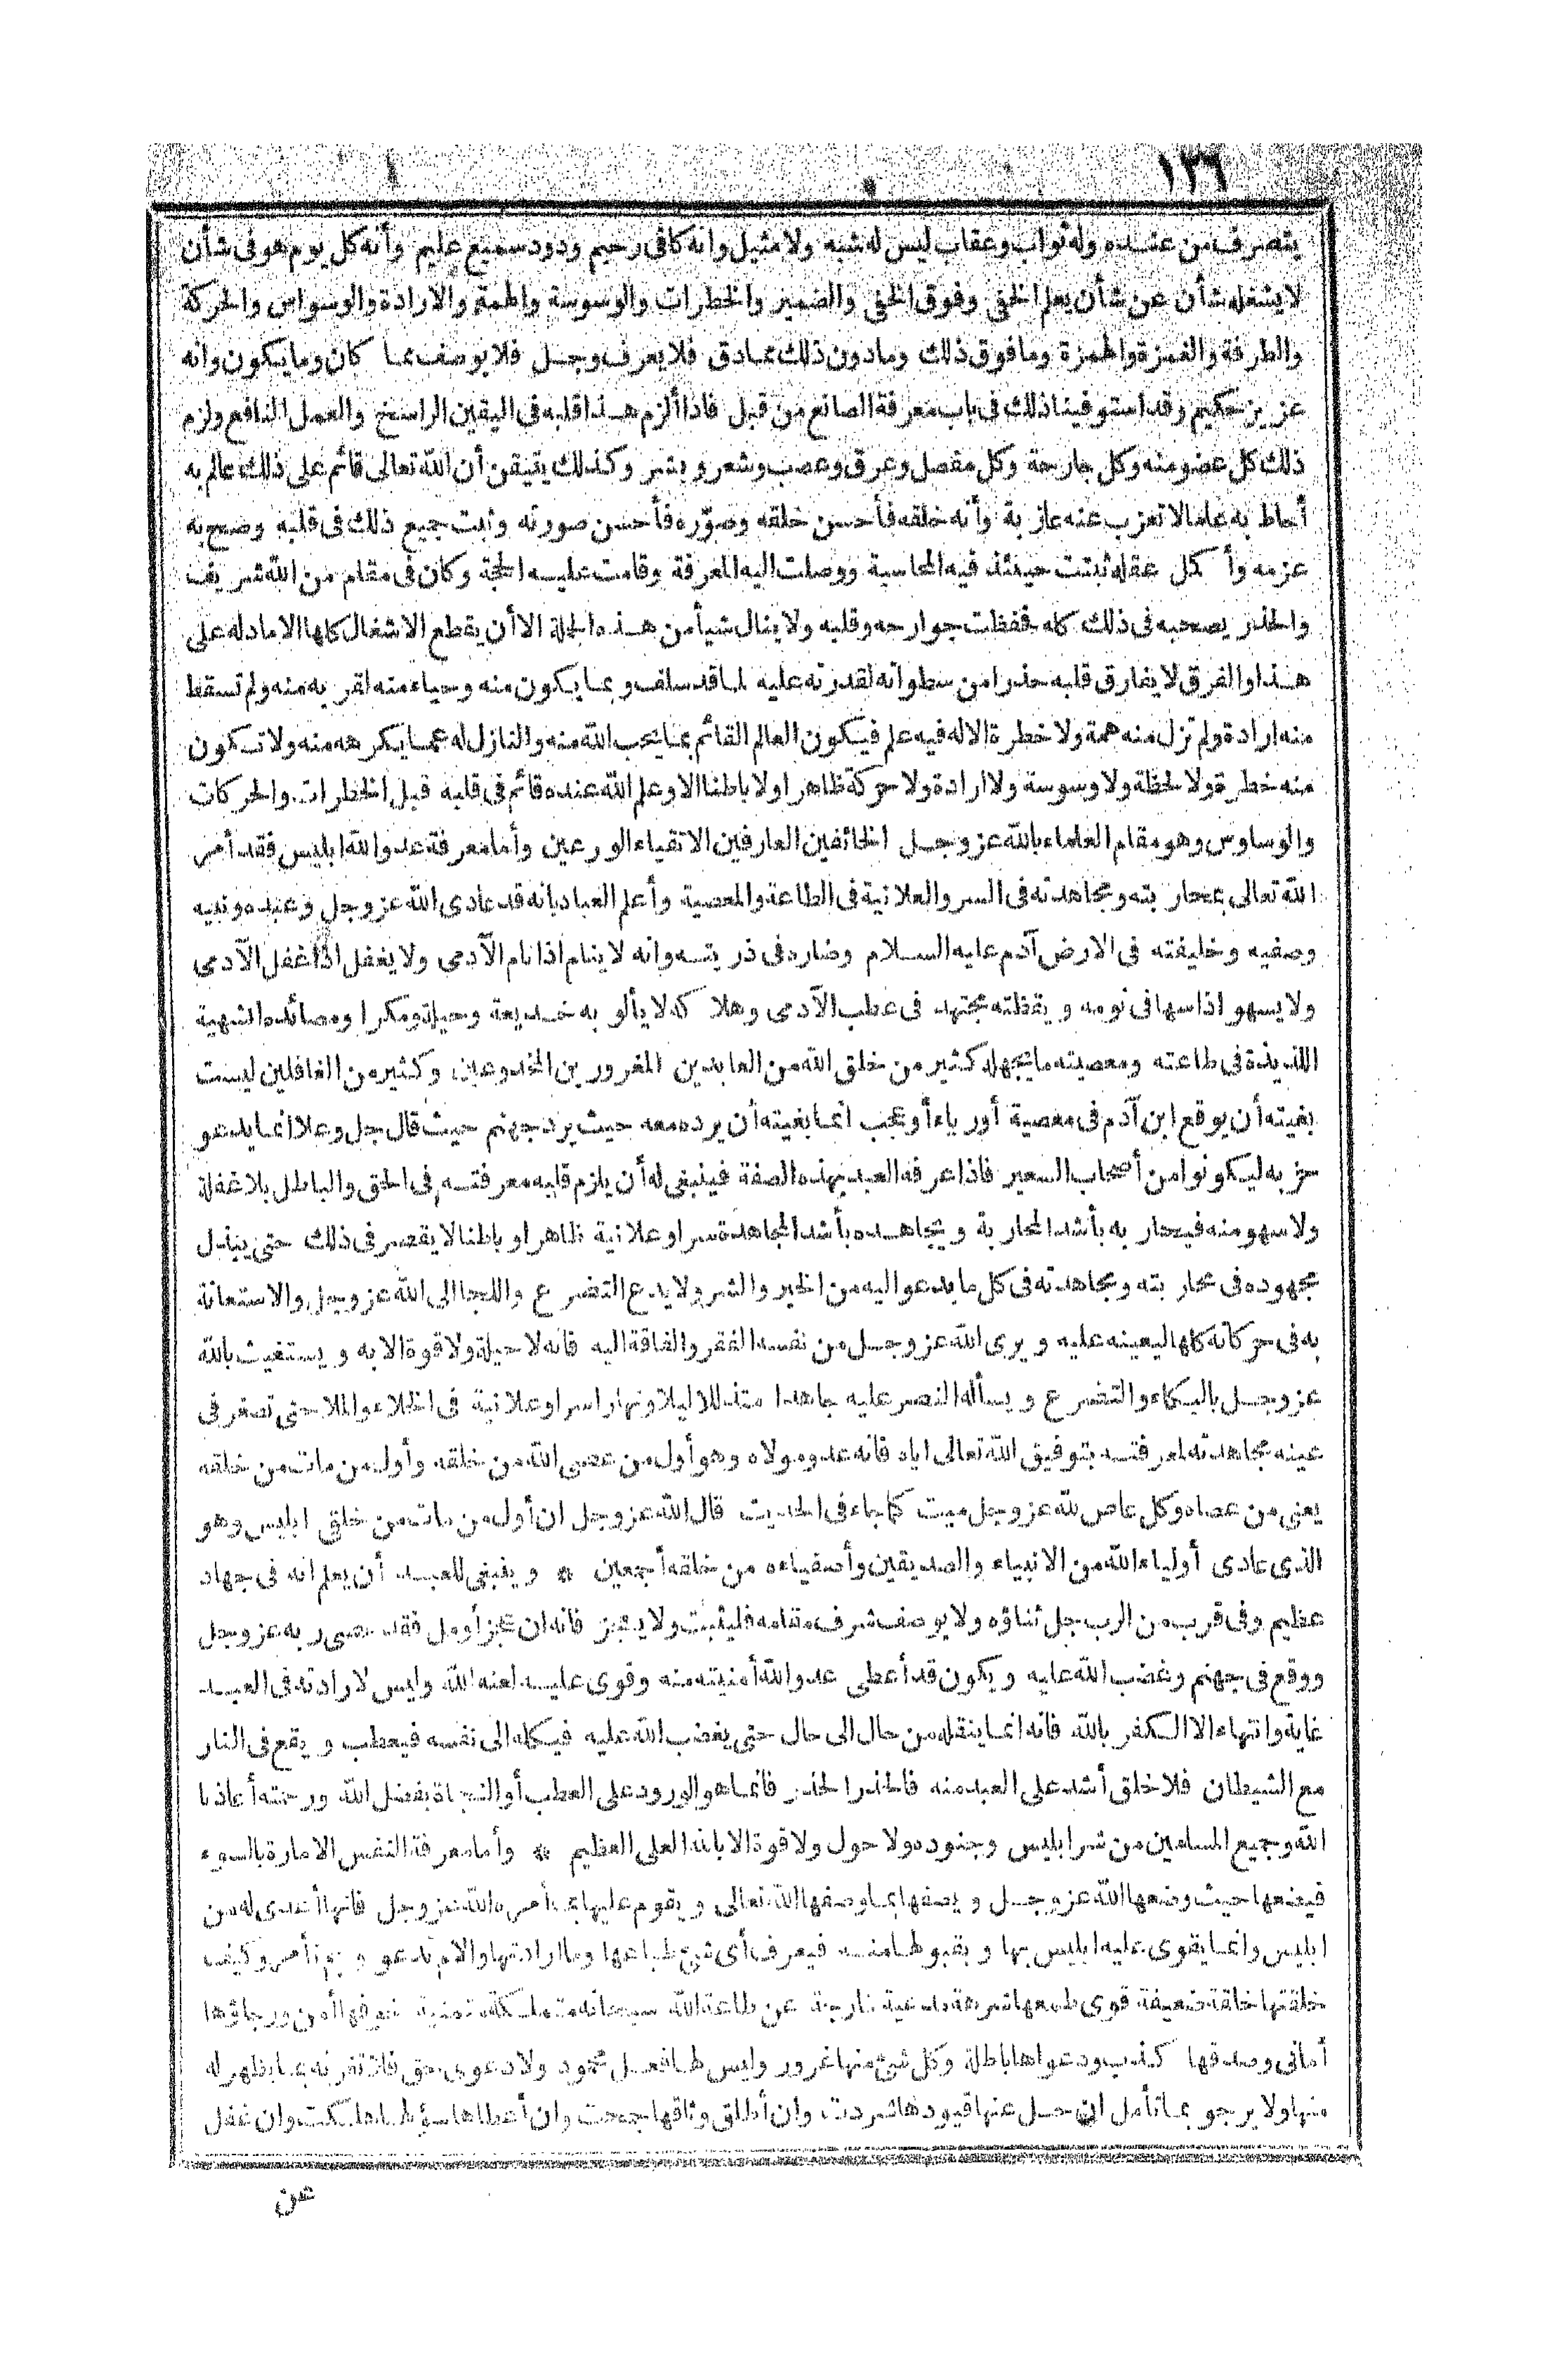 ١٣٦
يتصرف من عنده وله ثواب وعقاب ليس له شبه ولا مثيل وانه كافى رحيم ودود سميع عليم وأنه كل يوم هو فى شأن
لا يشغله شأن عن شأن يعلم الخفى وفوق الخفى والضمير والخطرات والوسوسة والهمة والارادة والوسواس والحركة
والطرفة والغمزة والهمزة وما فوق ذلك وما دون ذلك مما دق فلا يعرف وجل فلا يوصف مما كان وما يكون وانه
عزيز حكيم وقد استوفينا ذلك فى باب معرفة الصانع من قبل فاذا ألزم هذا قلبه فى اليقين الراسخ والعمل النافع ولزم
ذلك كل عضو منه وكل جارحة وكل مفصل وعرق وعصب وشعر وبشر وكذلك يتيقن أن الله تعالى قائم على ذلك عالم به
أحاط به علما لا تعزب عنه عازبة وأنه خلقه فأحسن خلقه وصوّره فأحسن صورته وثبت جميع ذلك فى قلبه وصح به
عزمه وأكمل عقله ثبتت حينئذ فيه المحاسبة ووصلت اليه المعرفة وقامت عليه الحجة وكان فى مقام من الله شريف
والحذر يصحبه فى ذلك كله فحفظت جوارحه وقلبه ولا ينال شيأ من هذه الجلة الا أن يقطع الاشغال كلها الا ما دله على
هذا والفرق لا يفارق قلبه حذرا من سطواته لقدرته عليه لما قد سلف وبما يكون منه وحياء منه لقربه منه ولم تسقط
منه ارادة ولم تزل منه همة ولا خطرة الا له فيه علم فيكون العالم القائم بما يحب الله منه والنازل له عما يكرهه منه ولا تكون
منه خطرة ولا لحظة ولا وسوسة ولا ارادة ولا حركة ظاهرا ولا باطنا الا وعلم الله عنده قائم فى قلبه قبل الخطرات والحركات
والوساوس وهو مقام العلماء بالله عز وجل الخائفين العارفين الاتقياء الورعين وأما معرفة عدو الله ابليس فقد أمر
الله تعالى بمحاربته ومجاهدته فى السر والعلانية فى الطاعة والمعصية وأعلم العباد بانه قد عادى الله عز وجل وعبده ونبيه
وصفيه وخليفته فى الارض آدم عليه السلام وضاره فى ذريته وانه لا ينام اذا نام الآدمى ولا يغفل اذا غفل الآدمى
ولا يسهو اذا سها فى نومه ويقظته مجتهد فى عطب الآدمى وهلاكه لا يألو به خديعة وحيلة ومكرا ومصائده الشهية
اللذيذة فى طاعته ومعصيته ما يجهله كثير من خلق الله من العابدين المغرورين المخدوعين وكثير من الغافلين ليست
بغيته أن يوقع ابن آدم فى معصية أو رياء أو عجب انما بغيته أن يرده معه حيث يرد جهنم حيث قال جل وعلا انما يدعو
حزبه ليكونوا من أصحاب السعير فاذا عرفه العبد بهذه الصفة فينبغى له أن يلزم قلبه معرفته فى الحق والباطل بلا غفلة
ولا سهو منه فيحاربه بأشد المحاربة ويجاهده بأشد المجاهدة سرا وعلانية ظاهرا وباطنا لا يقصر فى ذلك حتى يبذل
مجهوده فى محاربته ومجاهدته فى كل ما يدعو اليه من الخير والشر ولا يدع التضرع واللجا الى الله عز وجل والاستعانة
به فى حركاته كلها ليعينه عليه ويرى الله عز وجل من نفسه الفقر والفاقة اليه فانه لا حيلة ولا قوة الا به ويستغيث بالله
عز وجل بالبكاء والتضرع ويسأله النصر عليه جاهدا متذللا ليلا ونهارا سرا وعلانية فى الخلاء والملا حتى تصغر فى
عينه مجاهدته لمعرفته بتوفيق الله تعالى اياه فانه عدو مولاه وهو أول من عصى الله من خلقه وأول من مات من خلقه
يعنى من عصاه وكل عاص لله عز وجل ميت كما جاء فى الحديث قال الله عز وجل ان أول من مات من خلقى ابليس وهو
الذى عادى أولياء الله من الانبياء والصديقين وأصفياءه من خلقه أجمعين * وينبغى للعبد أن يعلم انه فى جهاد
عظيم وفى قرب من الرب جل ثناؤه ولا يوصف شرف مقامه فليثبت ولا يعجز فانه ان عجز أو مل فقد عصى ربه عز وجل
ووقع فى جهنم وغضب الله عليه ويكون قد أعطى عدو الله أمنيته منه وقوى عليه لعنه الله وليس لارادته فى العبد
غاية وانتهاء الا الكفر بالله فانه انما ينقله من حال الى حال حتى يغضب الله عليه فيكله الى نفسه فيعطب ويقع فى النار
مع الشيطان فلا خلق أشد على العبد منه فالحذر الحذر فانما هو الورود على العطب أو النجاة بفضل الله ورحمته أعاذنا
الله وجميع المسلمين من شر ابليس وجنوده ولا حول ولا قوة الا بالله العلى العظيم * وأما معرفة النفس الامارة بالسوء
فيضعها حيث وضعها الله عز وجل ويصفها بما وصفها الله تعالى ويقوم عليها بما أمره الله عز وجل فانها أعدى له من
ابليس وانما يقوى عليه ابليس بها وبقبولها منه فيعرف أى شئ طباعها وما ارادتها والام تدعو وبم تأمر وكيف
خلقتها خلقة ضعيفة قوى طمعها شرهة مدعية خارجة عن طاعة الله سبحانه متملكة متمنية خوفها أمن ورجاؤها
أمانى وصدقها كذب ودعواها باطلة وكل شئ منها غرور وليس لها فعل محمود ولا دعوى حق فلا تغرنه بما يظهر له
منها ولا يرجو بما تأمل ان حل عنها قيودها شردت وان أطلق وثاقها جمحت وان أعطاها سؤلها هلكت وان غفل
عن